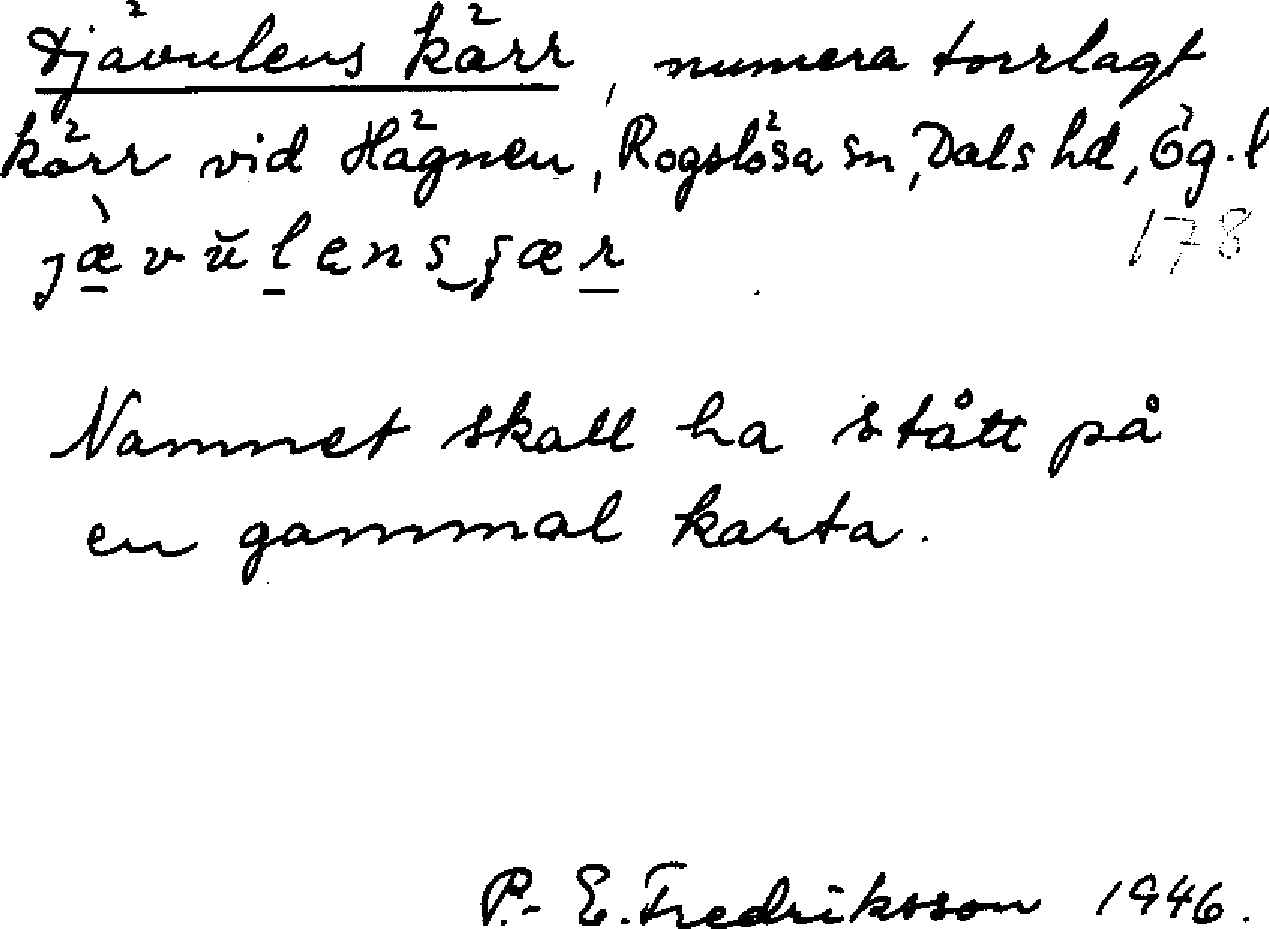 Djävulens kärr, numera torrlagt
kärr vid Hägnen, Rogslösa sn, Dals hd, Ög. l
178
Namnet skall ha stått på
en gammal karta.
P.-E. Fredriksson 1946.